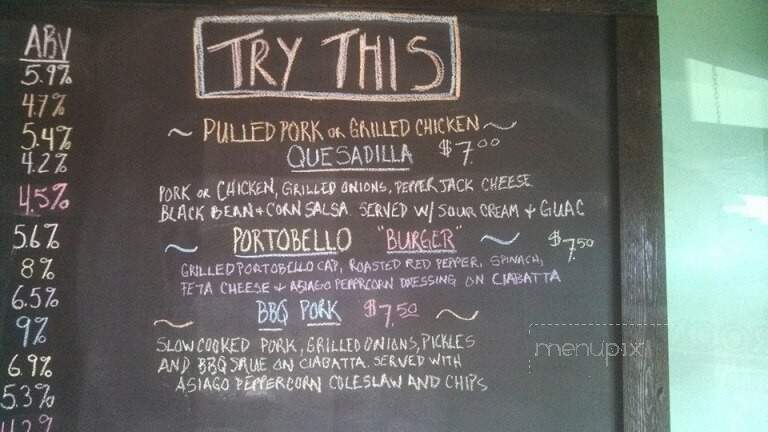 ABV
5.9%
4.7%
5.4%
4.2%
4.5%
5.6%
8%
6.5%
9%
6.9%
5.3%
4.2%
TRY THIS
~ PULLED PORK OR GRILLED CHICKEN ~
QUESADILLA $7.00
PORK OR CHICKEN, GRILLED ONIONS, PEPPER JACK CHEESE
BLACK BEAN + CORN SALSA SERVED W/ SOUR CREAM + GUAC
~ PORTOBELLO "BURGER" ~ $7.50
GRILLED PORTOBELLO CAP, ROASTED RED PEPPER, SPINACH,
FETA CHEESE + ASIAGO PEPPERCORN DRESSING ON CIABATTA
~ BBQ PORK $7.50 ~
SLOW COOKED PORK, GRILLED ONIONS, PICKLES
AND BBQ SAUE ON CIABATTA. SERVED WITH
ASIAGO PEPPERCORN COLESLAW AND CHIPS
menupix